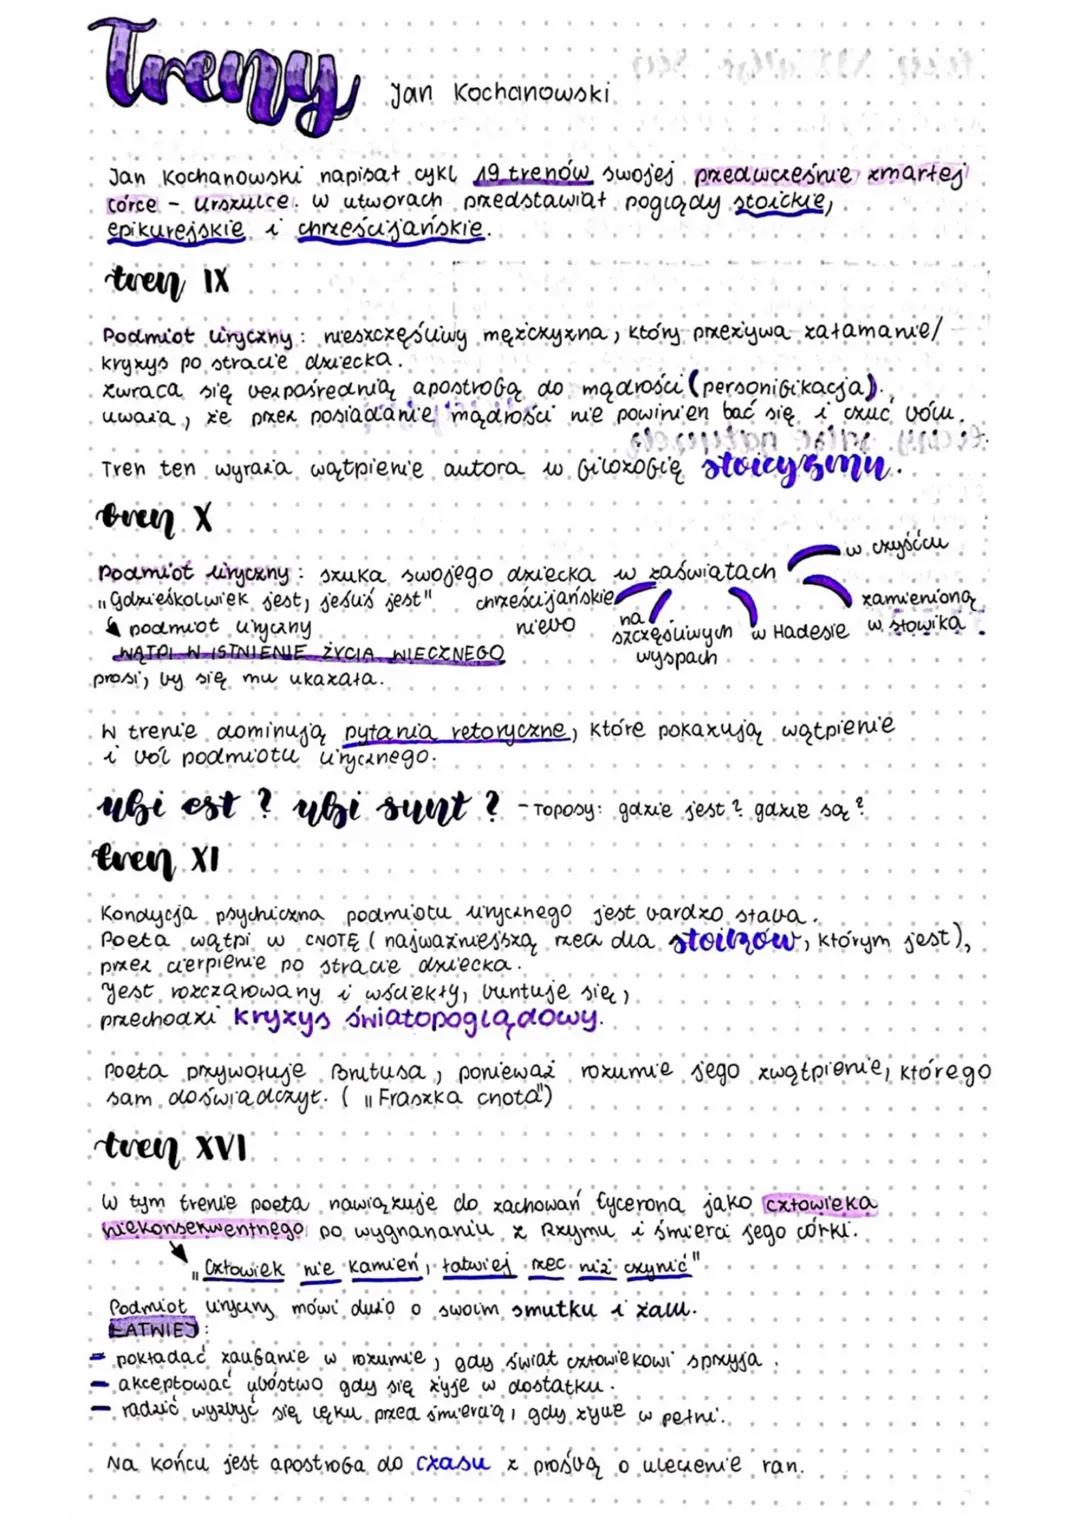 Treny
Jan Kochanowski.
Jan Kochanowski napisał cykl 19 trenów swojej przedwcześnie zmarłej
córce - Urszulce. W utworach przedstawiał poglądy stoickie,
epikurejskie i chrześcijańskie.
tren IX
Podmiot liryczny: nieszczęśliwy mężczyzna, który przeżywa załamanie/
kryzys po stracie dziecka.
zwraca się bezpośrednią apostrofą do mądrości (personifikacja).
uważa, że przez posiadanie mądrości nie powinien bać się i czuć bólu.
Tren ten wyraża wątpienie autora w filozofię stoicyzmu.
tren X
Podmiot liryczny: szuka swojego dziecka w zaświatach
w czyśćcu
"Gdzieśkolwiek jest, jesuś jest"
chrześcijańskie niebo
na szczęśliwych wyspach
w Hadesie
zamienioną w słowika
podmiot liryczny
WĄTPI W ISTNIENIE ŻYCIA WIECZNEGO
prosi, by się mu ukazała.
W trenie dominują pytania retoryczne, które pokazują wątpienie
i ból podmiotu lirycznego.
ubi est? ubi sunt? - Toposy: gdzie jest? gdzie są?
tren XI
Kondycja psychiczna podmiotu lirycznego jest bardzo słaba.
Poeta wątpi w CNOTĘ (najważniejszą rzecz dla stoików, którym jest),
przez cierpienie po stracie dziecka.
Jest rozczarowany i wściekły, buntuje się,
przechodzi kryzys światopoglądowy.
Poeta przywołuje Brutusa, ponieważ rozumie jego zwątpienie, którego
sam doświadczył. ("Fraszka cnota")
tren XVI
W tym trenie poeta nawiązuje do zachowań Cycerona jako człowieka
niekonsekwentnego po wygnananiu z Rzymu i śmierci jego córki.
"Człowiek nie kamień, łatwiej rzec niż czynić"
Podmiot liryczny mówi dużo o swoim smutku i żalu.
ŁATWIEJ:
- pokładać zaufanie w rozumie, gdy świat człowiekowi sprzyja.
- akceptować ubóstwo gdy się żyje w dostatku.
- radzić wyzbyć się lęku przed śmiercią, gdy żyje w pełni.
Na końcu jest apostrofa do czasu z prośbą o uleczenie ran.